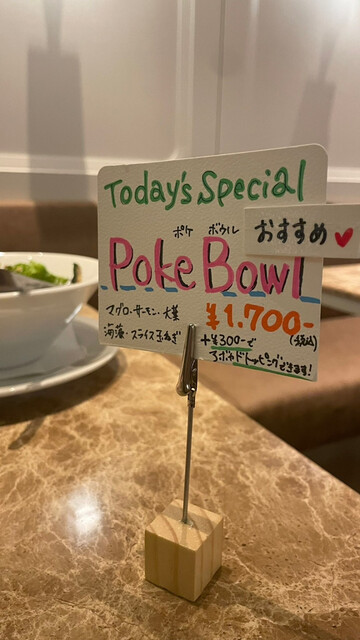 Today's Special
おすすめ♥
ポケ ボウル
Poke Bowl
マグロ・サーモン・大葉
海藻・スライス玉ねぎ
¥1.700-
(税込)
+¥300-で
アボカドトッピングできます!